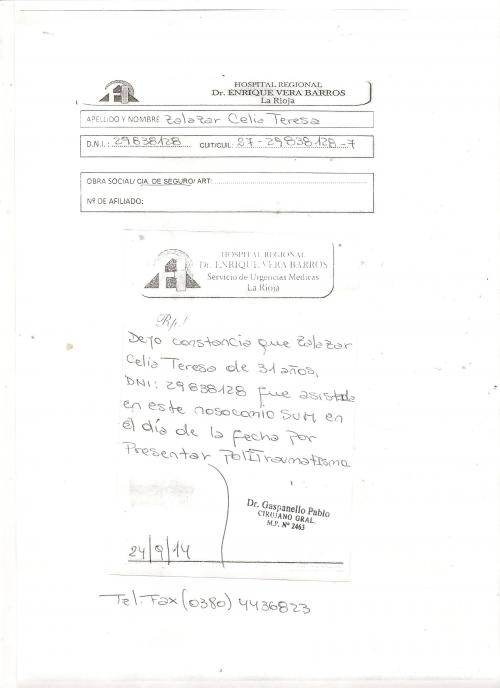 HOSPITAL REGIONAL
Dr. ENRIQUE VERA BARROS
La Rioja
APELLIDO Y NOMBRE: Zalazar Celia Teresa
D.N.I.: 29838128 CUIT/CUIL: 27-29838128-7
OBRA SOCIAL/ CIA. DE SEGURO/ ART:
Nº DE AFILIADO:
HOSPITAL REGIONAL
Dr. ENRIQUE VERA BARROS
Servicio de Urgencias Medicas
La Rioja
Rp.!
Dejo constancia que Zalazar
Celia Teresa de 31 años,
DNI: 29838128 fue asistida
en este nosocomio SUM en
el día de la fecha por
Presentar politraumatismo
Dr. Gaspanello Pablo
CIRUJANO GRAL.
M.P. Nº 2463
24/9/14
Tel. Fax (0380) 4436823